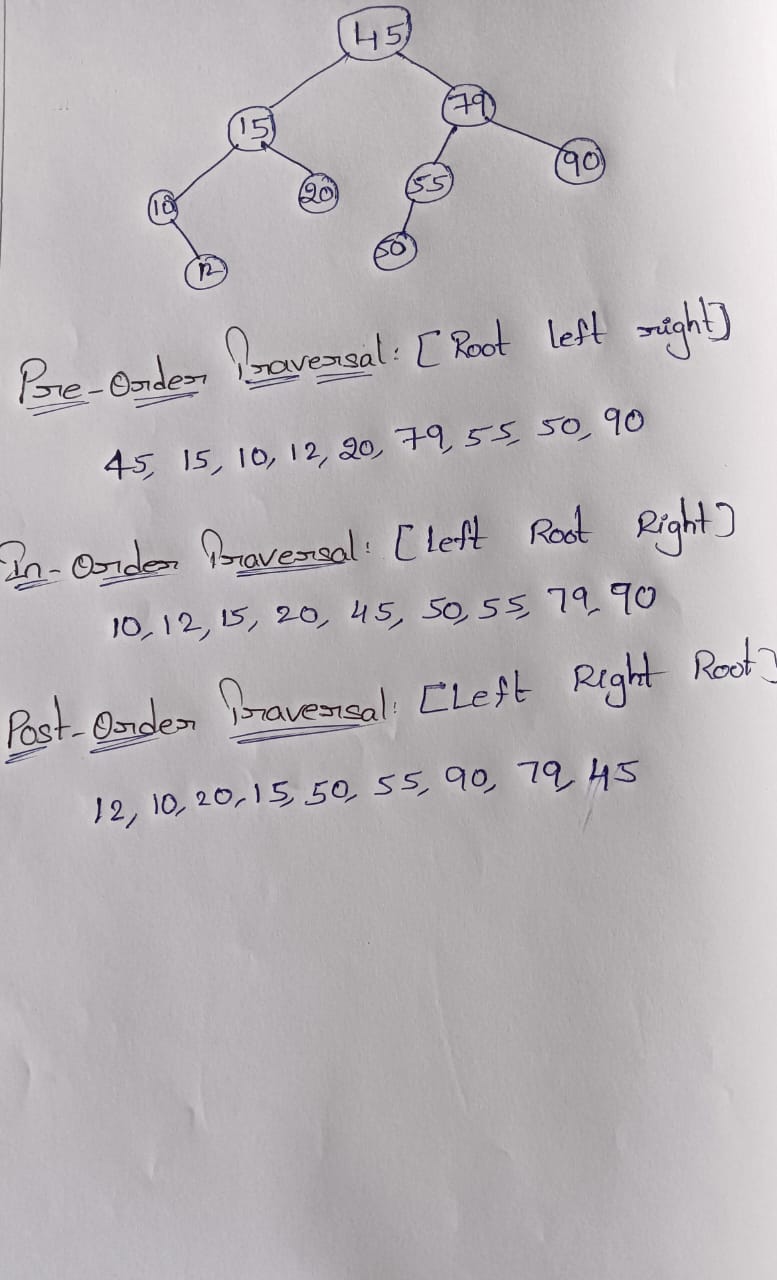 45
15
79
90
10
20
55
12
50
Pre-Order Traversal: [Root left right]
45, 15, 10, 12, 20, 79, 55, 50, 90
In-Order Traversal: [Left Root Right]
10, 12, 15, 20, 45, 50, 55, 79, 90
Post-Order Traversal: [Left Right Root]
12, 10, 20, 15, 50, 55, 90, 79, 45